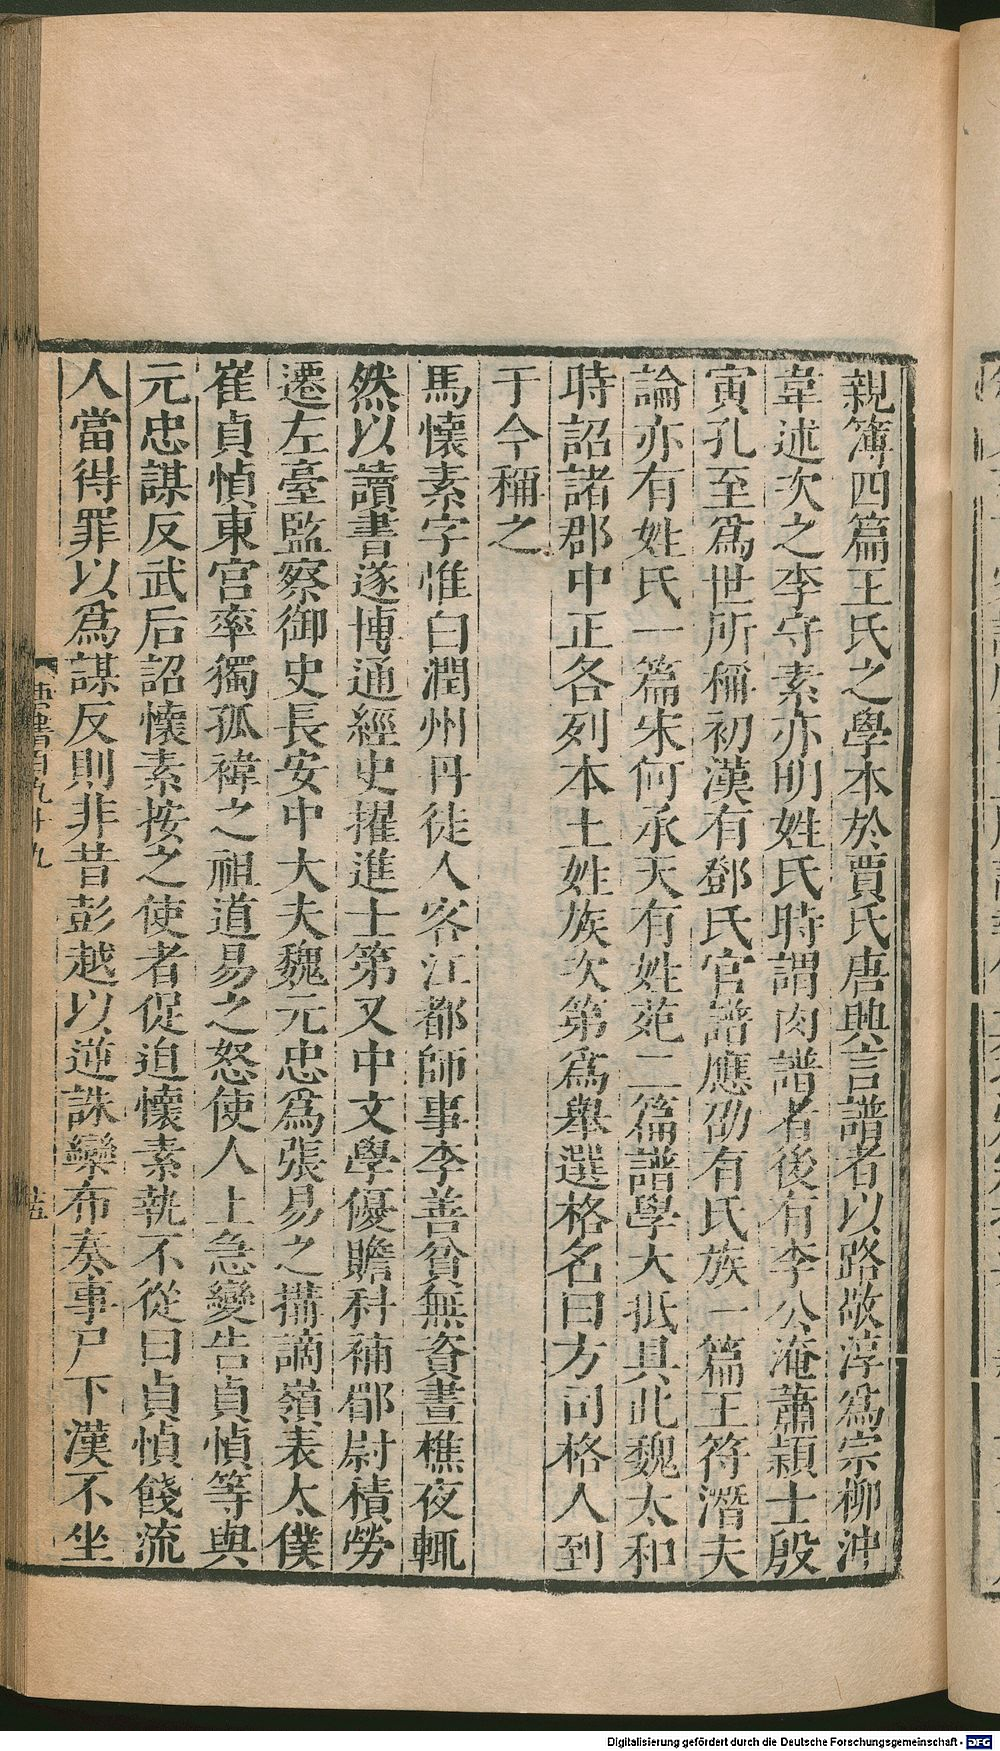 親簿四篇王氏之學本於賈氏唐興言譜者以路敬淳爲宗柳沖
韋述次之李守素亦明姓氏時謂肉譜者後有李公淹蕭穎士殷
寅孔至爲世所稱初漢有鄧氏官譜應劭有氏族一篇王符潛夫
論亦有姓氏一篇宋何承天有姓苑二篇譜學大抵具此魏太和
時詔諸郡中正各列本土姓族次第爲舉選格名曰方司格人到
于今稱之
馬懷素字惟白潤州丹徒人客江都師事李善貧無資晝樵夜輒
然以讀書遂博通經史擢進士第又中文學優贍科補郿尉積勞
遷左臺監察御史長安中大夫魏元忠爲張易之搆謫嶺表太僕
崔貞愼東宮率獨孤禕之祖道易之怒使人上急變告貞愼等與
元忠謀反武后詔懷素按之使者促迫懷素執不從曰貞愼餞流
人當得罪以爲謀反則非昔彭越以逆誅欒布奏事尸下漢不坐
唐書百九十九
Digitalisierung gefördert durch die Deutsche Forschungsgemeinschaft - DFG